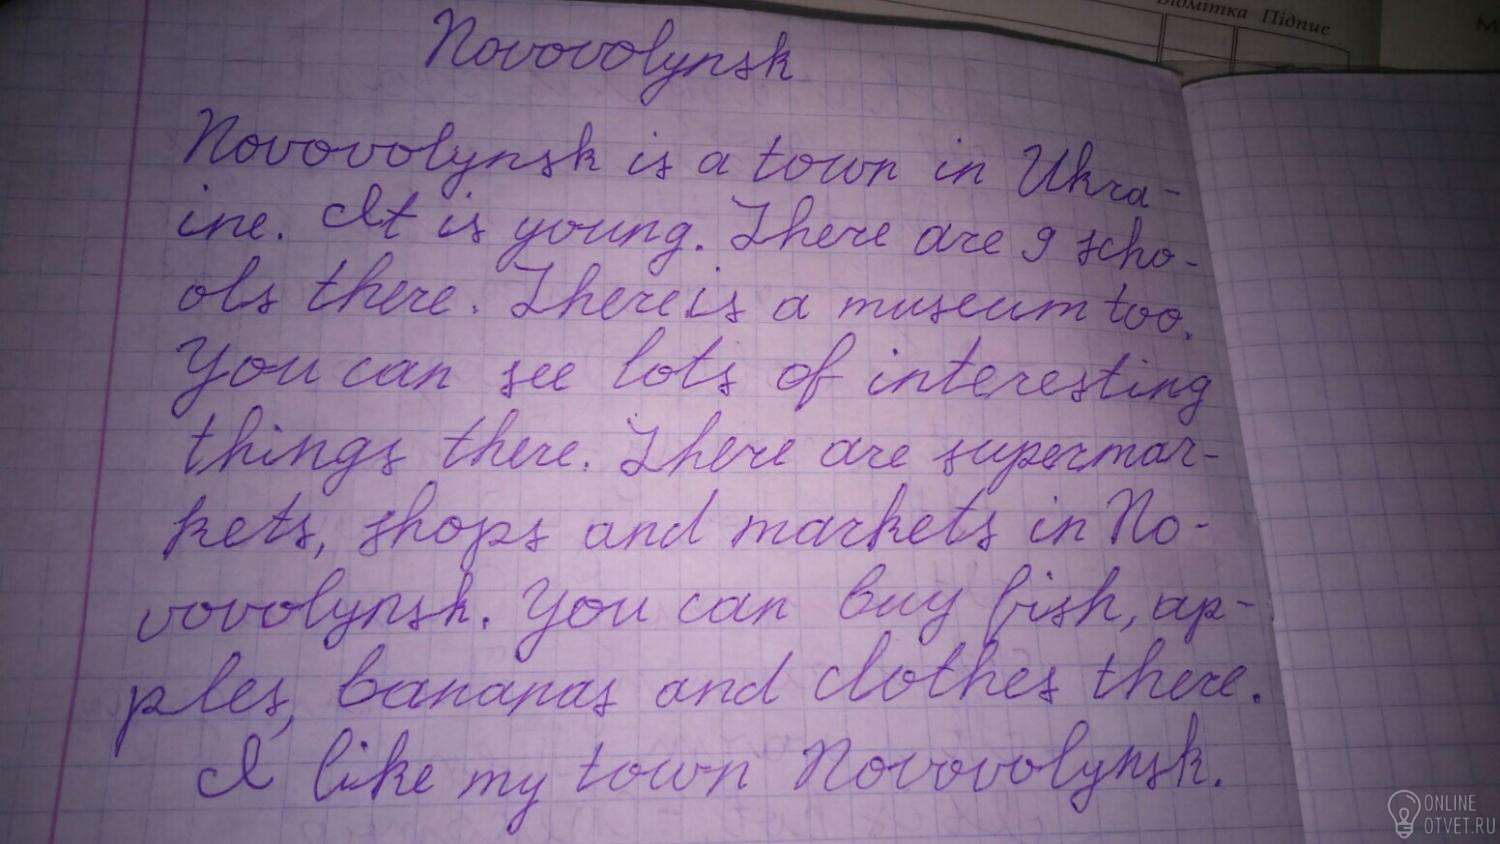 Відмітка Підпис
М
Novovolynsk
Novovolynsk is a town in Ukra-
ine. It is young. There are 9 scho-
ols there. There is a museum too.
You can see lots of interesting
things there. There are supermar-
kets, shops and markets in No-
vovolynsk. You can buy fish, ap-
ples, bananas and clothes there.
I like my town Novovolynsk.
ONLINE
OTVET.RU